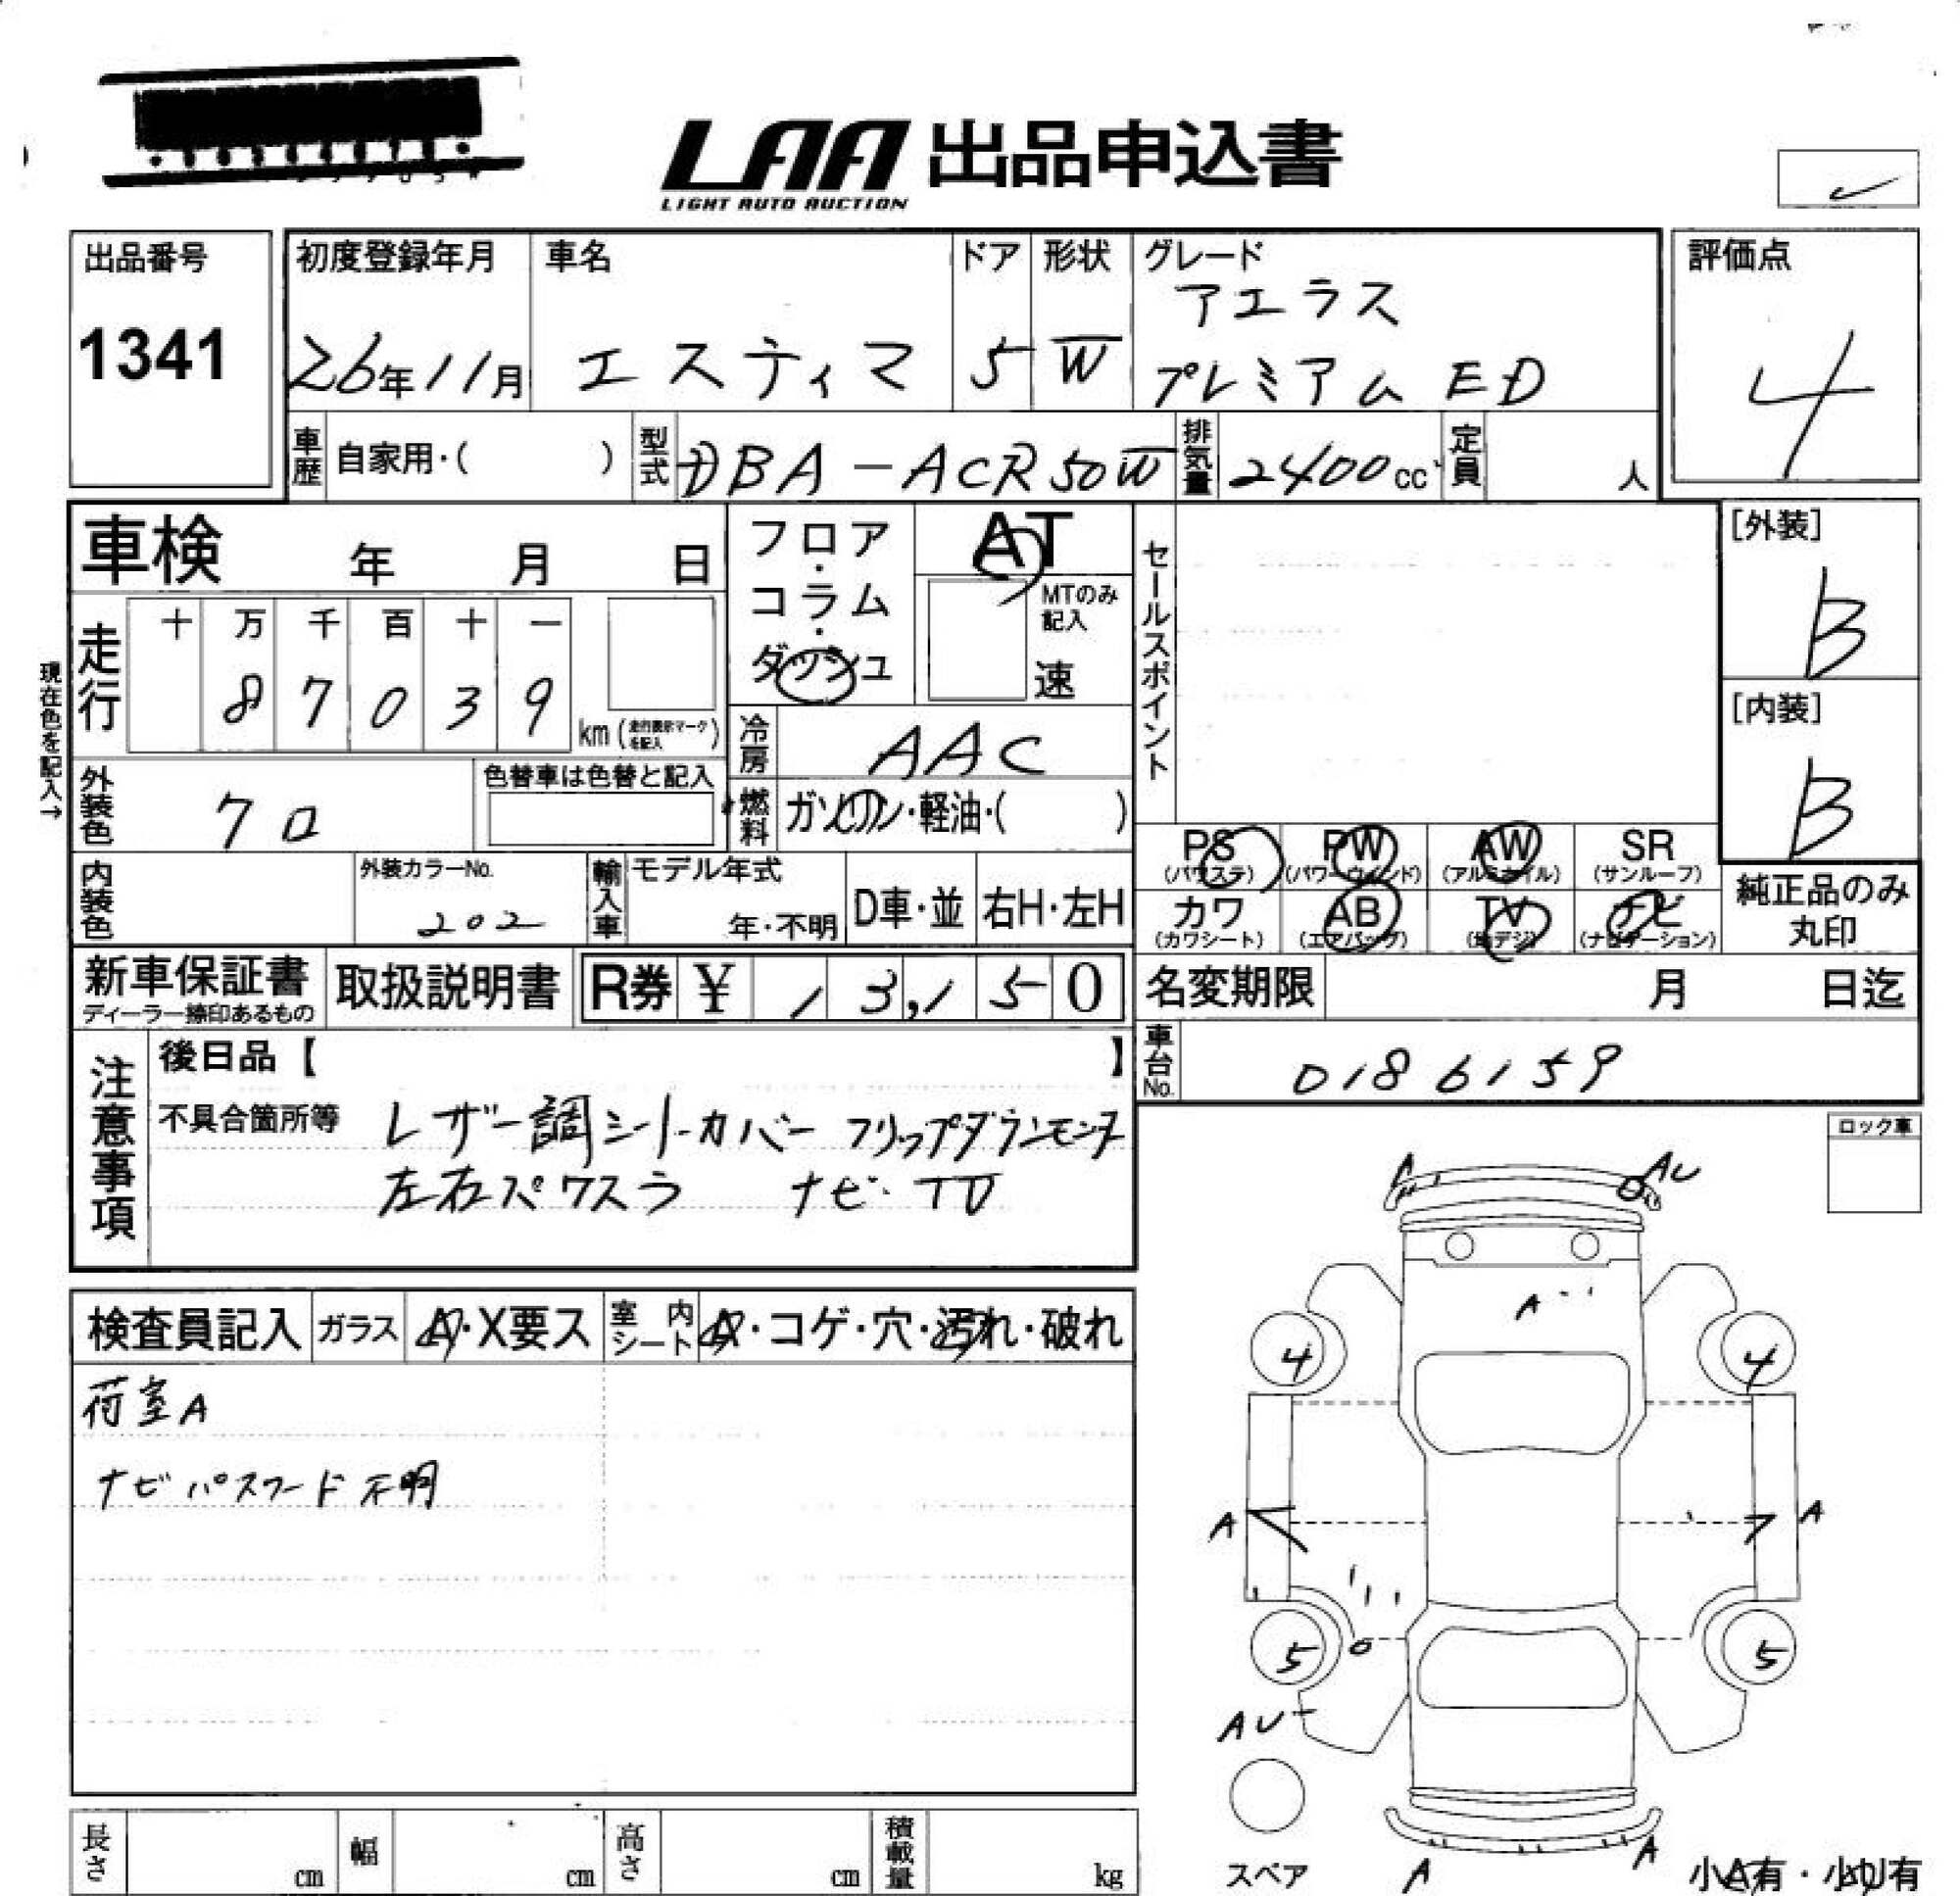 LAA 出品申込書
LIGHT AUTO AUCTION
出品番号
1341
初度登録年月
26年11月
車名
エスティマ
ドア
5
形状
W
グレード
アエラス
プレミアム ED
評価点
4
車歴 自家用・( )
型式 DBA-ACR50W
排気量 2400cc
定員 人
車検 年 月 日
フロア・コラム・ダッシュ
AT
MTのみ記入
速
セールスポイント
[外装]
B
[内装]
B
現在色を記入→
走行
十 万 千 百 十 一
8 7 0 3 9
km(走行表示マークを記入)
冷房 AAC
外装色 クロ
色替車は色替と記入
燃料 ガソリン・軽油・( )
PS (パワステ)
PW (パワーウィンド)
AW (アルミホイル)
SR (サンルーフ)
カワ (カワシート)
AB (エアバッグ)
TV (地デジ)
ナビ (ナビゲーション)
純正品のみ丸印
内装色
外装カラーNo.
202
輸入車
モデル年式
年・不明
D車・並
右H・左H
新車保証書
ディーラー捺印あるもの
取扱説明書
R券 ¥ 13,150
名変期限 月 日迄
車台No. 0186159
注意事項
後日品【 】
不具合箇所等
レザー調シートカバー フリップダウンモニタ
左右パワスラ ナビ・TV
ロック車
検査員記入
ガラス A・X要ス
室内シート A・コゲ・穴・汚れ・破れ
荷室A
ナビパスワード不明
A
AU
A
4
4
A
A
5
5
AU
スペア
A
A
小A有・小U有
長さ cm
幅 cm
高さ cm
積載量 kg